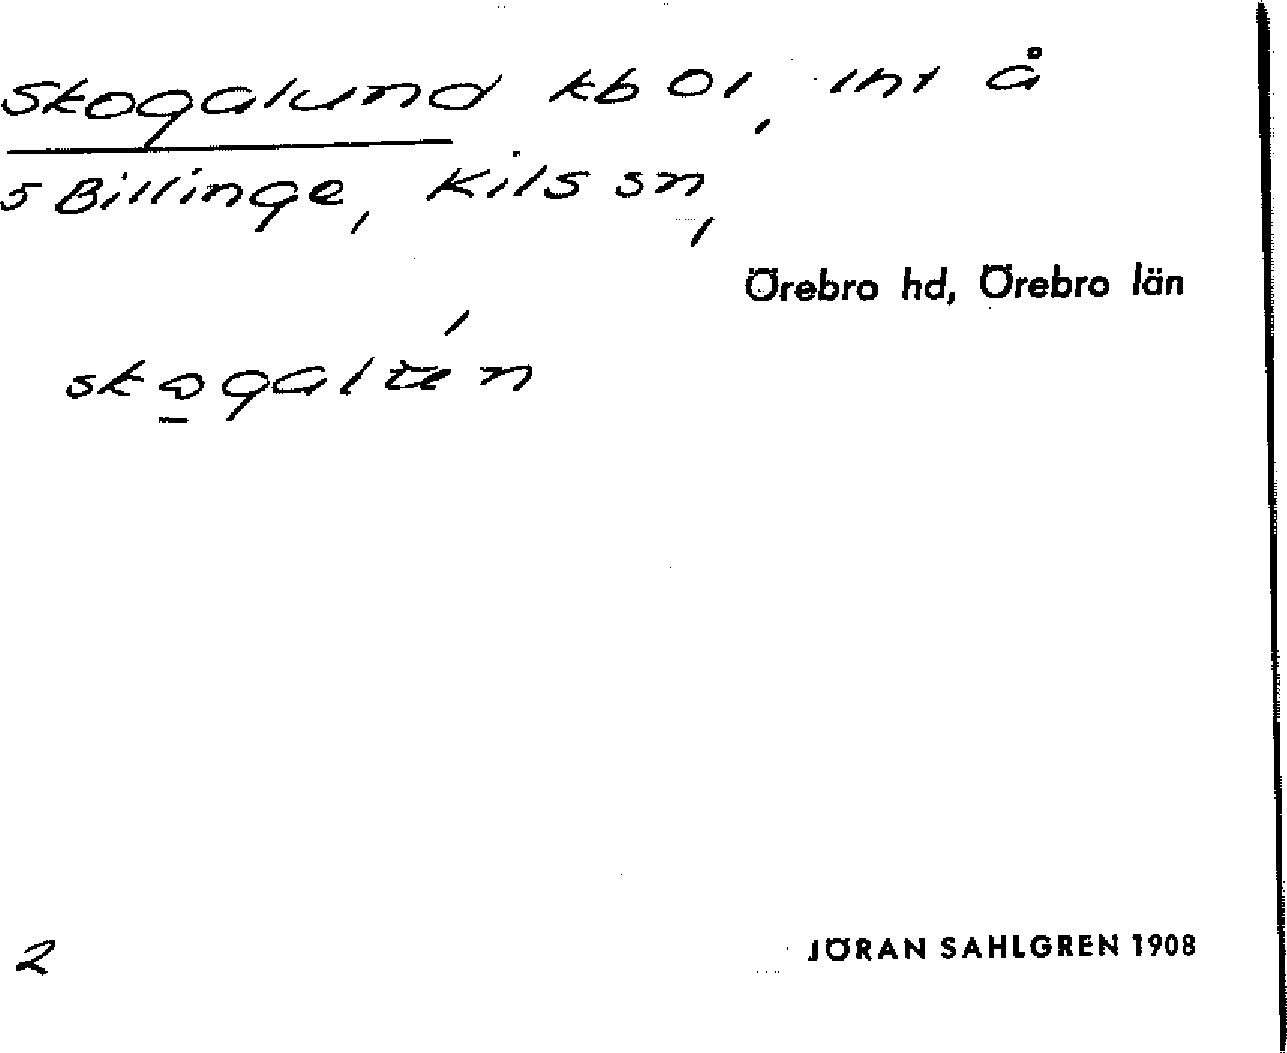 Skogalund kb 01, int å
5 Billinge, Kils sn,
Örebro hd, Örebro län
2
JÖRAN SAHLGREN 1908